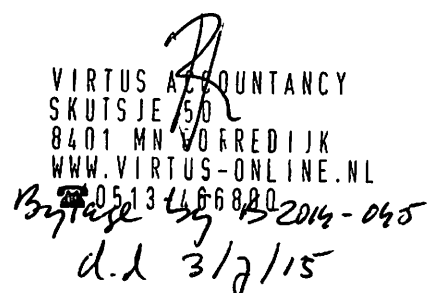 VIRTUS ACCOUNTANCY
SKUTSJE 50
8401 MN GORREDIJK
WWW.VIRTUS-ONLINE.NL
☎ 0513-466800
Bijlage bij B2014-045
d.d 3/7/15